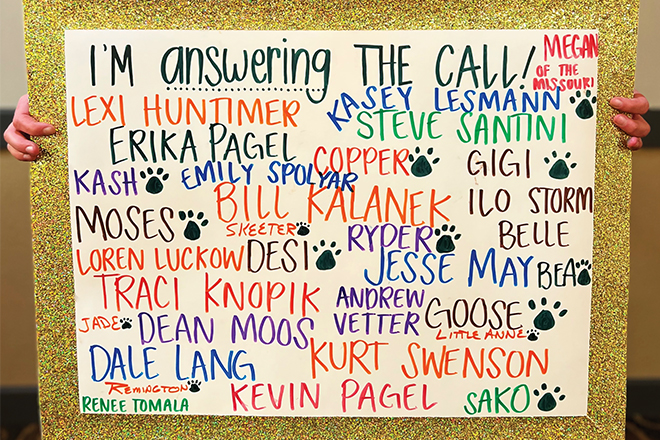 I'M answering THE CALL!
MEGAN
OF THE
MISSOURI
LEXI HUNTIMER
KASEY LESMANN
STEVE SANTINI
ERIKA PAGEL
COPPER
GIGI
KASH
EMILY SPOLYAR
BILL KALANEK
ILO STORM
MOSES
SKEETER
RYDER
BELLE
LOREN LUCKOW
DESI
JESSE MAY
BEA
TRACI KNOPIK
ANDREW
VETTER
GOOSE
JADE
DEAN MOOS
LITTLE ANNE
DALE LANG
KURT SWENSON
REMINGTON
RENEE TOMALA
KEVIN PAGEL
SAKO